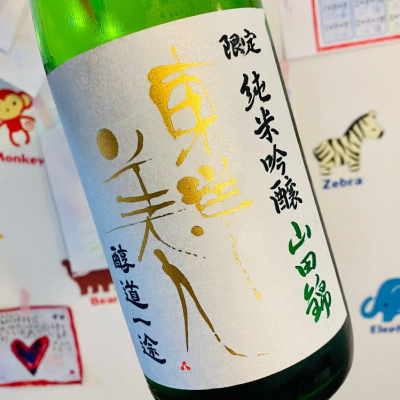 限定 純米吟醸 山田錦
東洋
美人
醇道一途
Monkey
Zebra
Bear
Elep